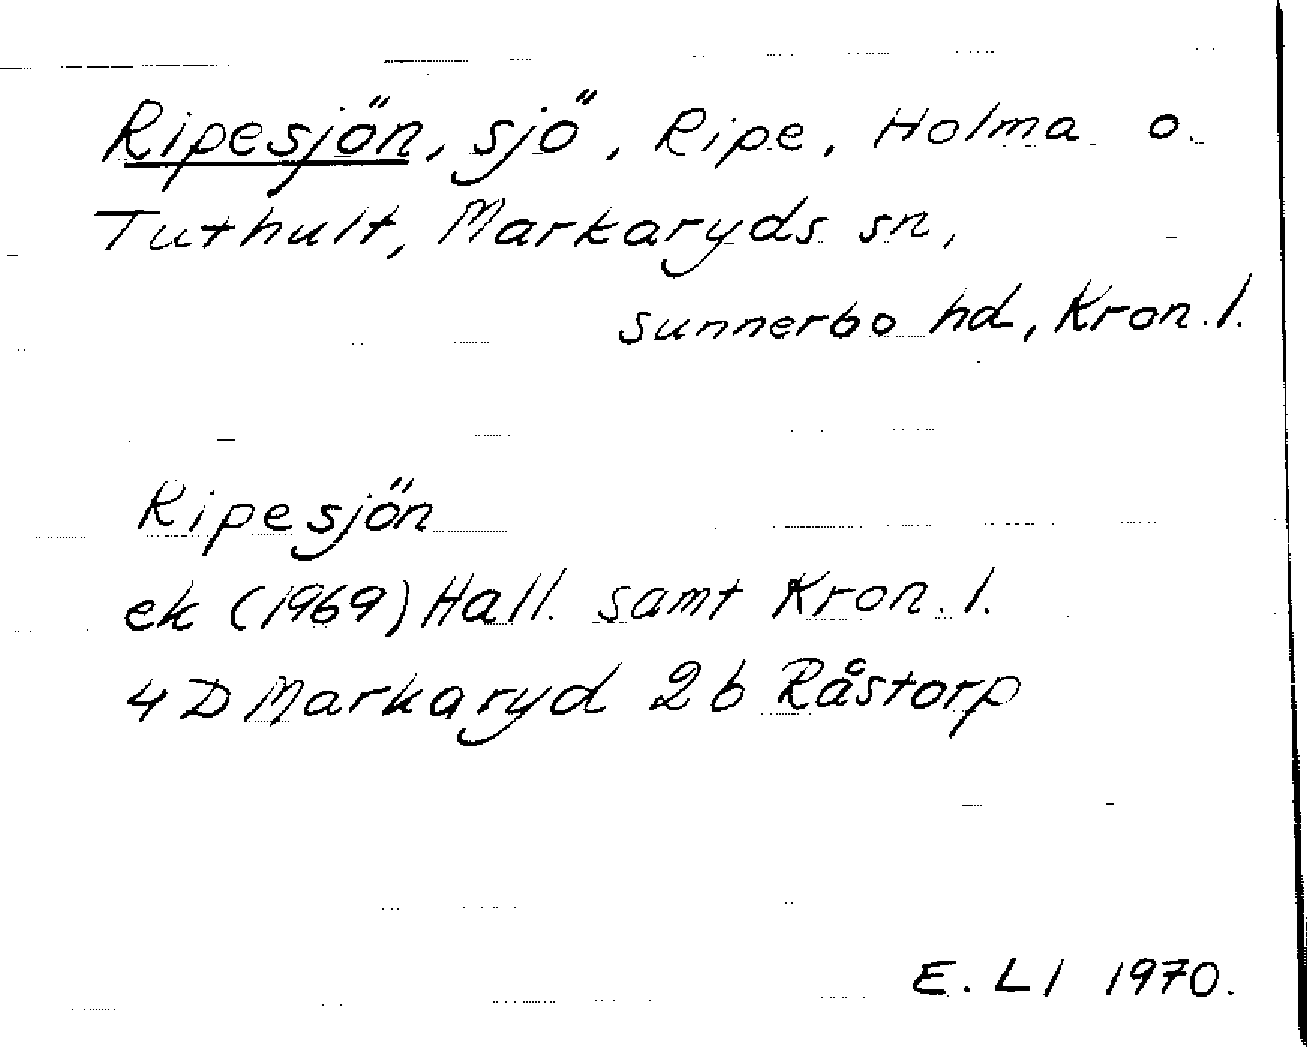 Ripesjön, sjö, Ripe, Holma o.
Tuthult, Markaryds sn,
Sunnerbo hd, Kron. l.
Ripesjön
ek (1969) Hall. samt Kron. l.
4D Markaryd 2b Råstorp
E. Ll 1970.